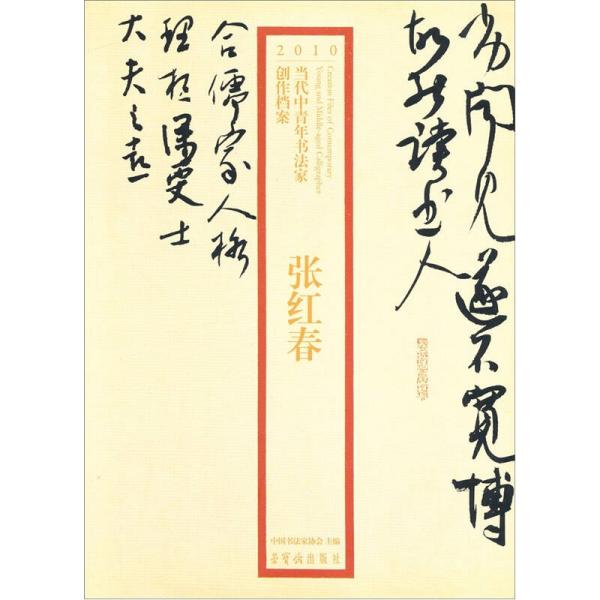 2010
当代中青年书法家
创作档案
Creation Files of Contemporary
Young and Middle-aged Calligrapher
张红春
中国书法家协会 主编
荣宝斋出版社
闻见遂不宽博
读书人
合儒家人格
理想
士
大夫之意